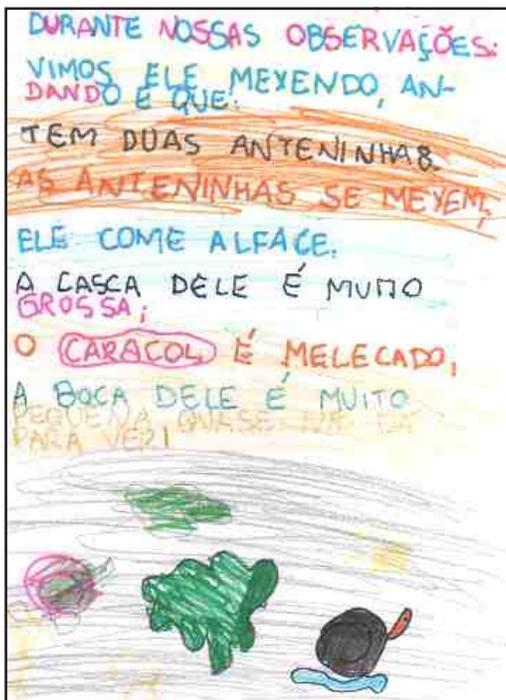 DURANTE NOSSAS OBSERVAÇÕES:
VIMOS ELE MEXENDO, AN-
DANDO E QUE:
TEM DUAS ANTENINHAS.
AS ANTENINHAS SE MEXEM;
ELE COME ALFACE.
A CASCA DELE É MUITO
GROSSA;
O CARACOL É MELECADO,
A BOCA DELE É MUITO
PEQUENA QUASE NÃO DÁ
PARA VER!